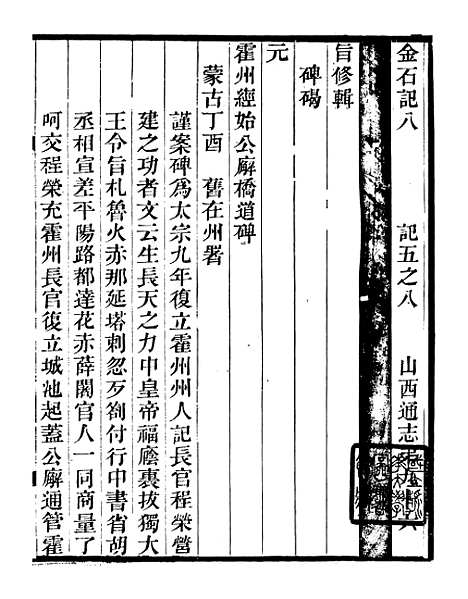 金石記八　記五之八　山西通志
旨修輯
碑碣
元
霍州經始公廨橋道碑
蒙古丁酉　舊在州署
謹案碑爲太宗九年復立霍州州人記長官程榮營
建之功者文云生長天之力中皇帝福廕裏拔獨大
王令旨札魯火赤那延塔刺忽歹箚付行中書省胡
丞相宣差平陽路都達花赤薛闍官人一同商量了
呵交程榮充霍州長官復立城池起蓋公廨通管霍